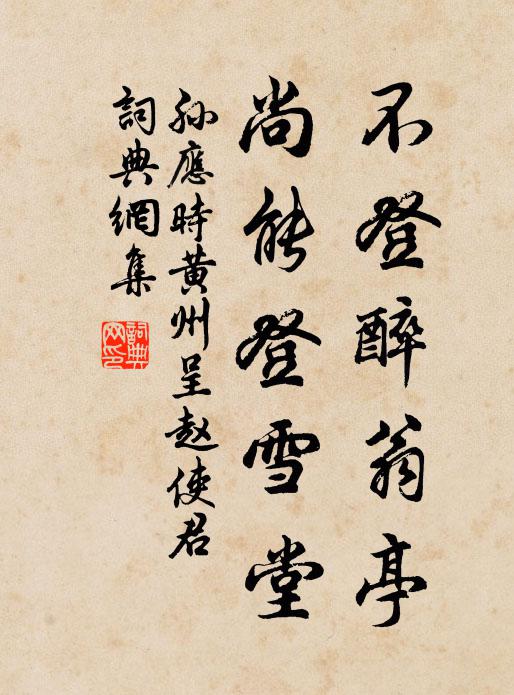 不登醉翁亭
尚能登雪堂
孙應時黄州呈赵使君
詞典網集
詞典网印